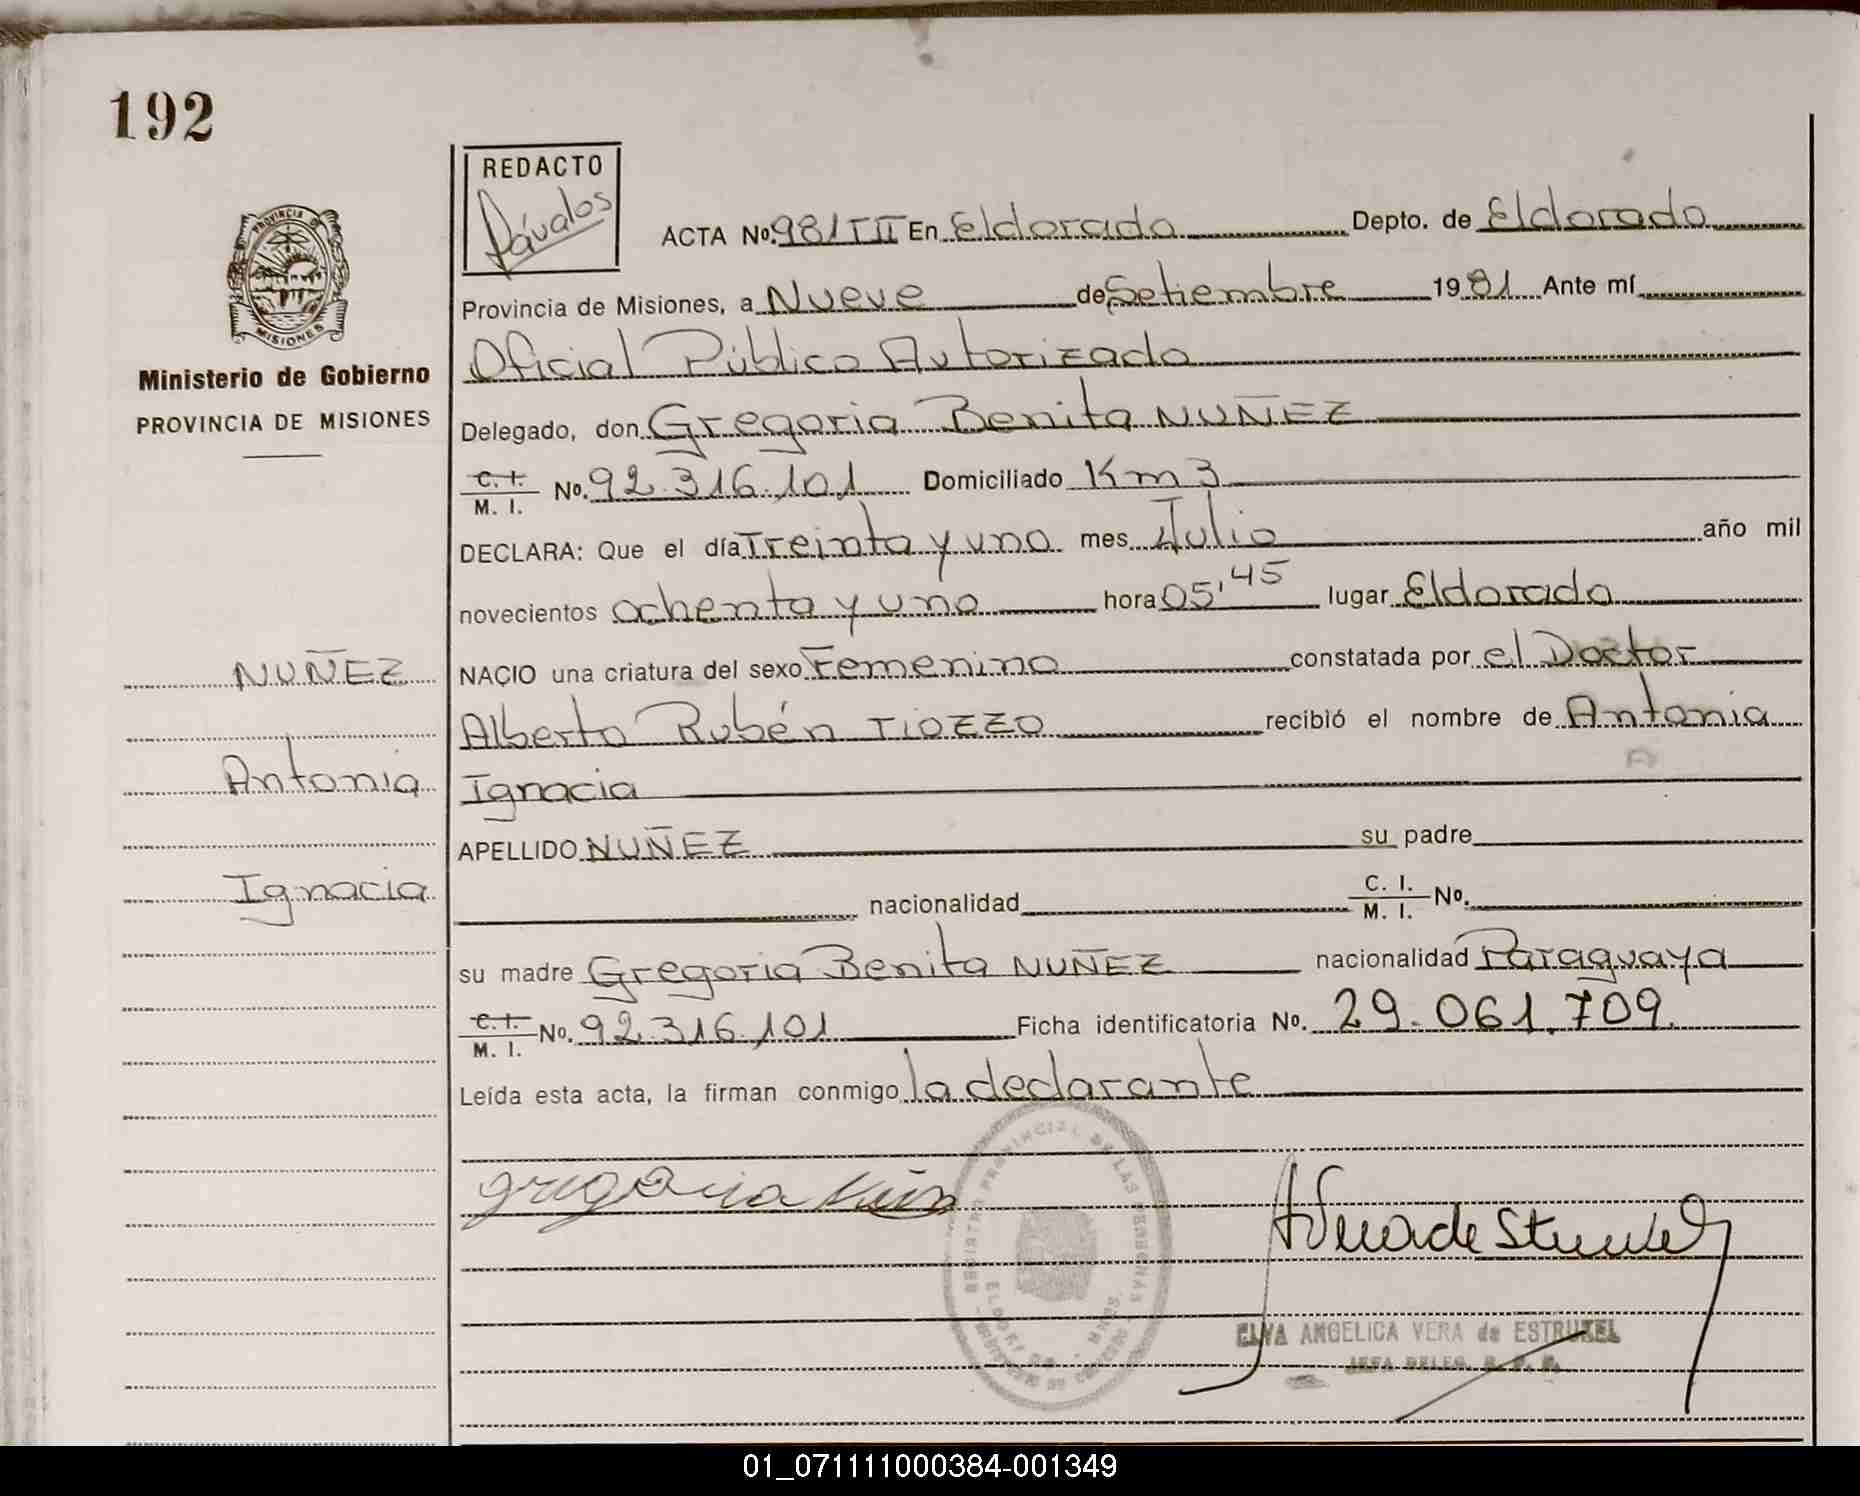 192
REDACTO
Dávalos
ACTA No. 981 TII En Eldorado Depto. de Eldorado
PROVINCIA DE
MISIONES
Provincia de Misiones, a Nueve de Setiembre 1981 Ante mí
Ministerio de Gobierno
Oficial Público Autorizado
PROVINCIA DE MISIONES
Delegado, don Gregoria Benita NUÑEZ
C. I.
M. I. No. 92.316.101 Domiciliado Km 3
DECLARA: Que el día Treinta y uno mes Julio año mil
novecientos ochenta y uno hora 05,45 lugar Eldorado
NUÑEZ
NACIO una criatura del sexo Femenino constatada por el Doctor
Alberto Rubén TIOZZO recibió el nombre de Antonia
Antonia
Ignacia
APELLIDO NUÑEZ su padre
Ignacia
nacionalidad C. I.
M. I. No.
su madre Gregoria Benita NUÑEZ nacionalidad Paraguaya
C. I.
M. I. No. 92.316.101 Ficha identificatoria No. 29.061.709.
Leída esta acta, la firman conmigo la declarante
REGISTRO PROVINCIAL DE LAS PERSONAS
gregoria
ELVA ANGELICA VERA de ESTRUXEL
JEFA DELEG. R. P. P.
01_071111000384-001349